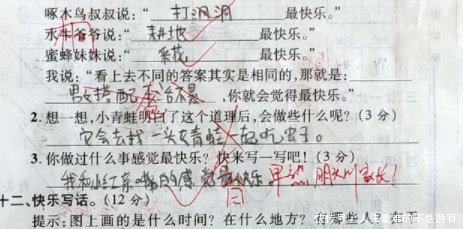 啄木鸟叔叔说:“打洞洞最快乐。”
水牛爷爷说:“耕地最快乐。”
蜜蜂妹妹说:“采花最快乐。”
我说:“看上去不同的答案其实是相同的,那就是:
男女搭配 干活不累,你就会觉得最快乐。”
2. 想一想,小青蛙明白了这个道理后,会做些什么呢?(3 分)
它会去找一头母青蛙一起吃虫子。
3. 你做过什么事感觉最快乐? 快来写一写吧!(3 分)
我和小红亲嘴的时 最快乐 早熟 明天叫家长!
十二、快乐写话。(12 分)
提示:图上画的是什么时间? 在什么地方? 有哪些人